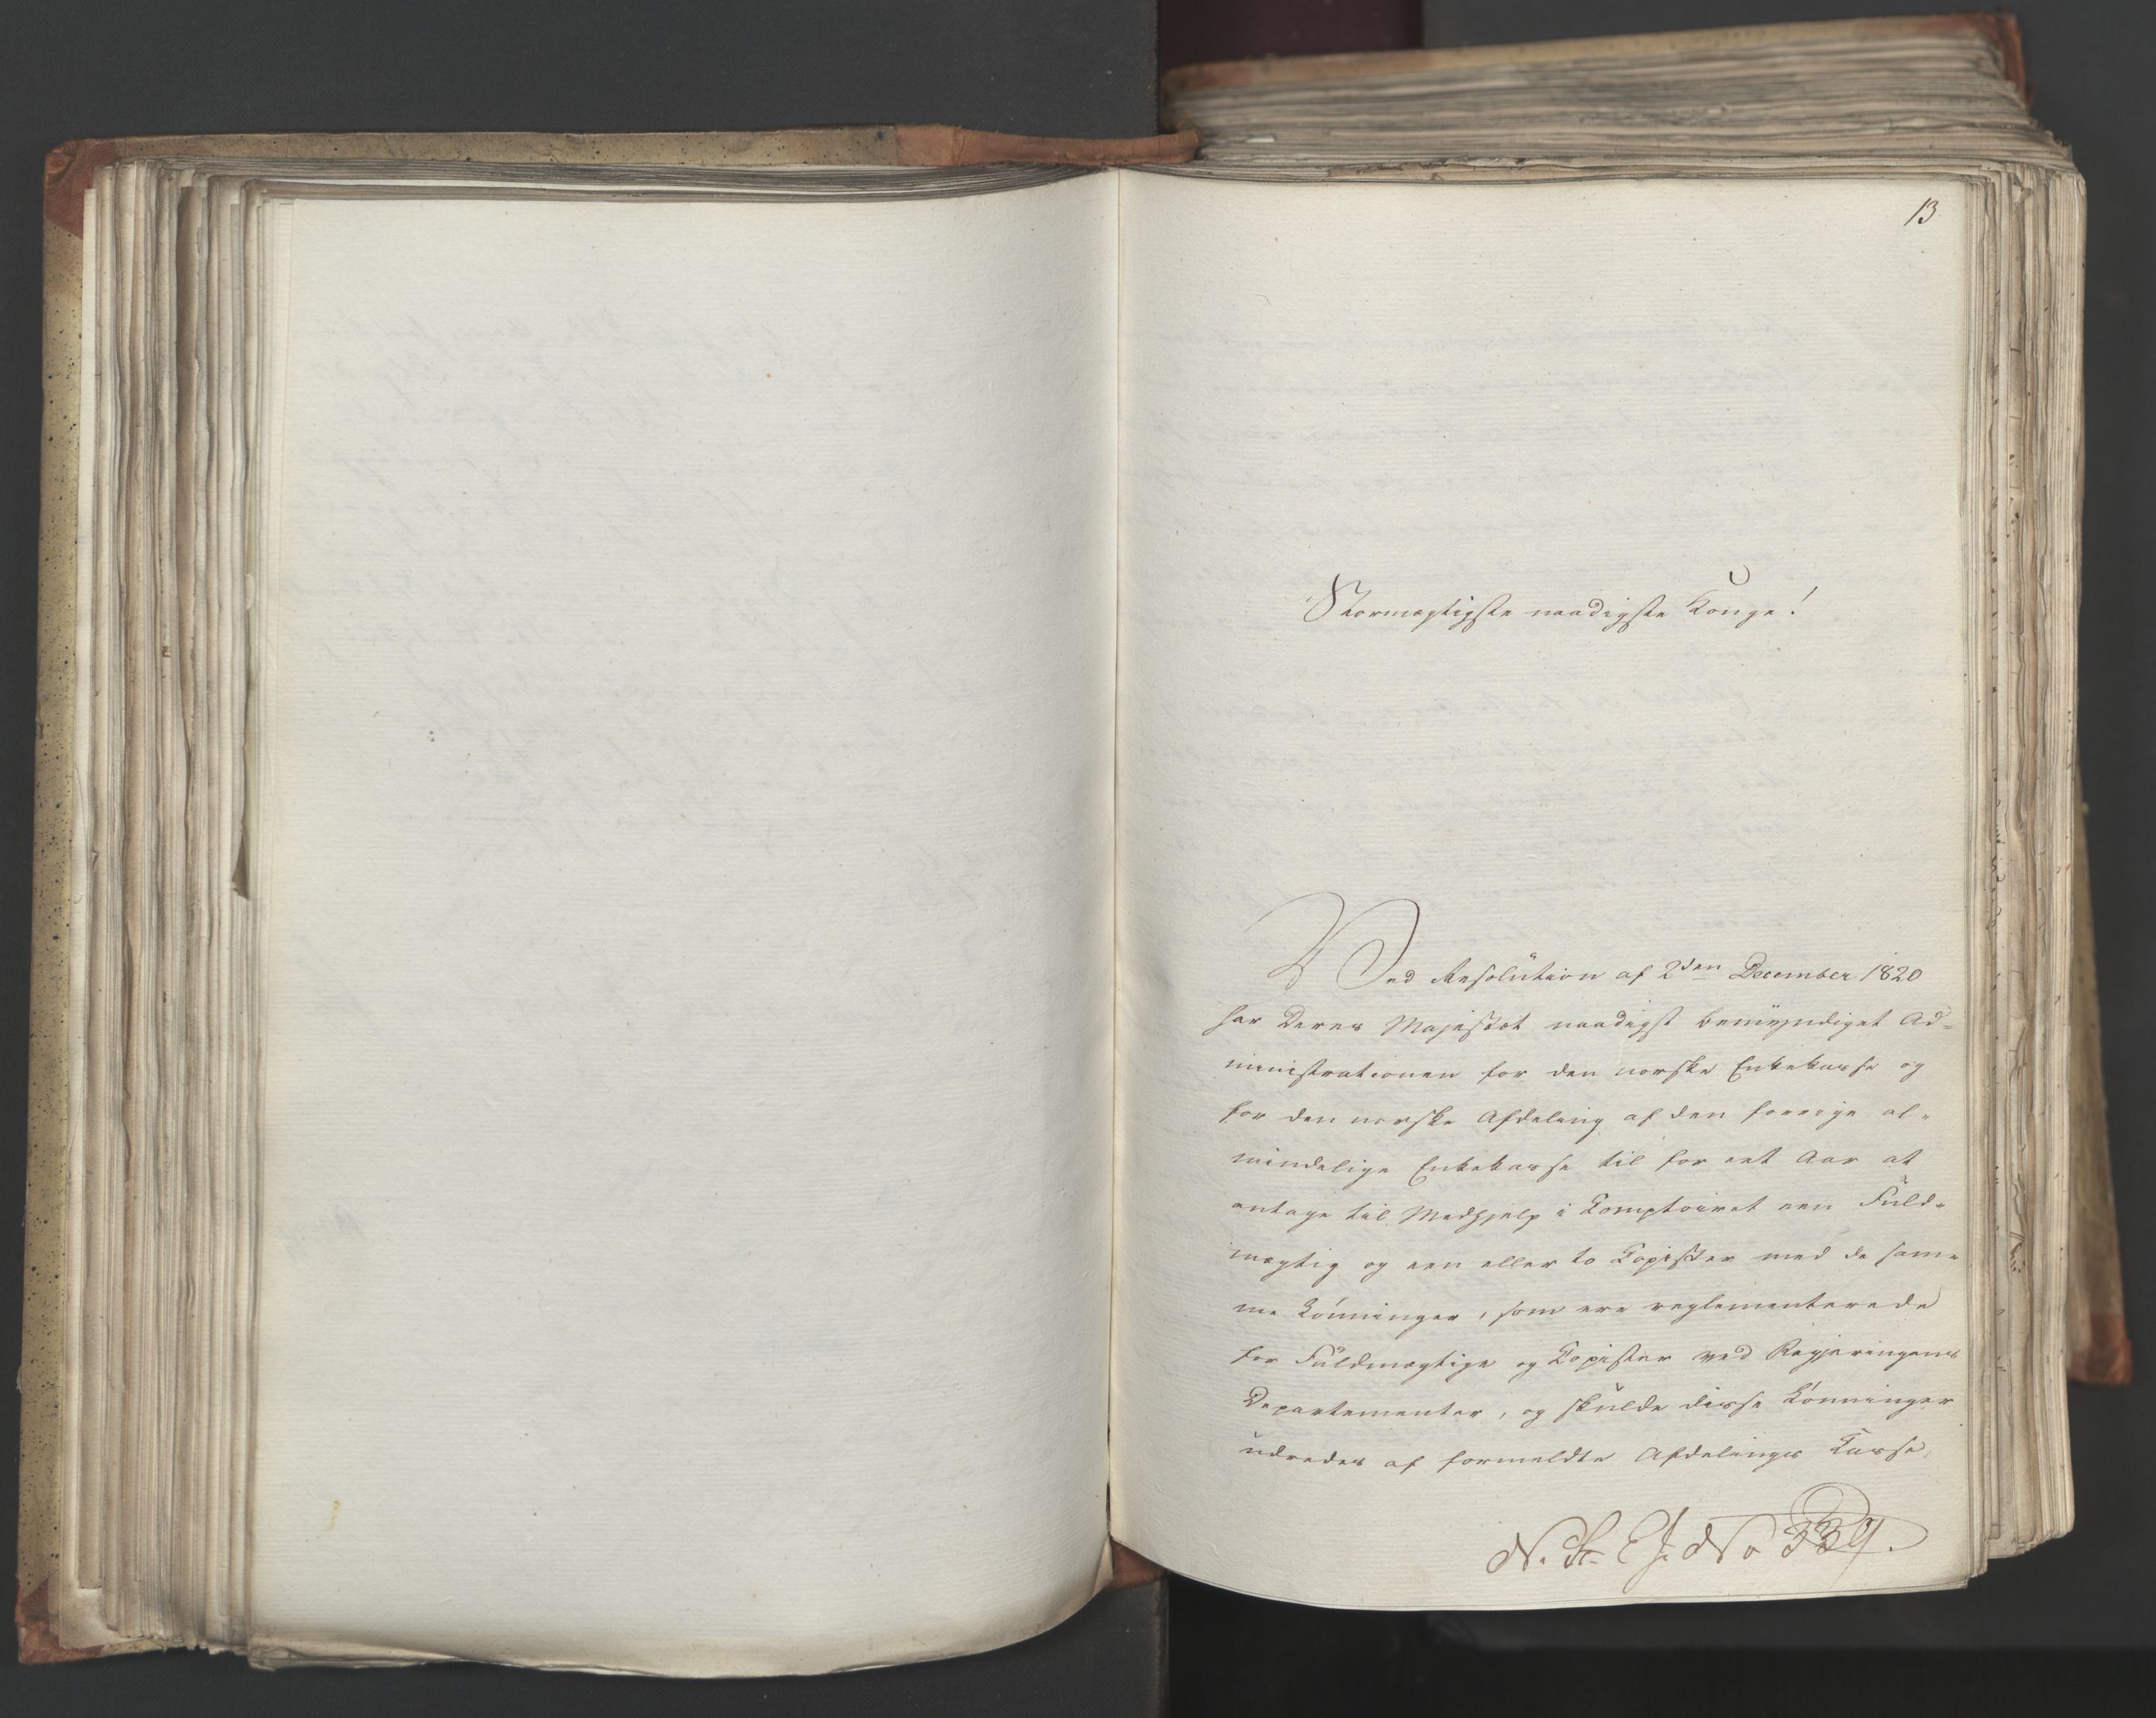 13
Stormægtigste naadigste Konge!
Ved Resolution af 2den December 1820
har Deres Majestæt naadigst bemyndiget Ad-
ministrationen for den norske Enkekasse og
for den norske Afdeling af den forrige al-
mindelige Enkekasse til for eet Aar at
antage til Medhjelp i Comptoiret een Fuld-
mægtig og een eller to Copister med de sam-
me Lønninger, som ere reglementerede
for Fuldmægtige og Copister ved Regjeringens
Departementer, og skulde disse Lønninger
udredes af formeldte Afdelings Kasse,
No 339.